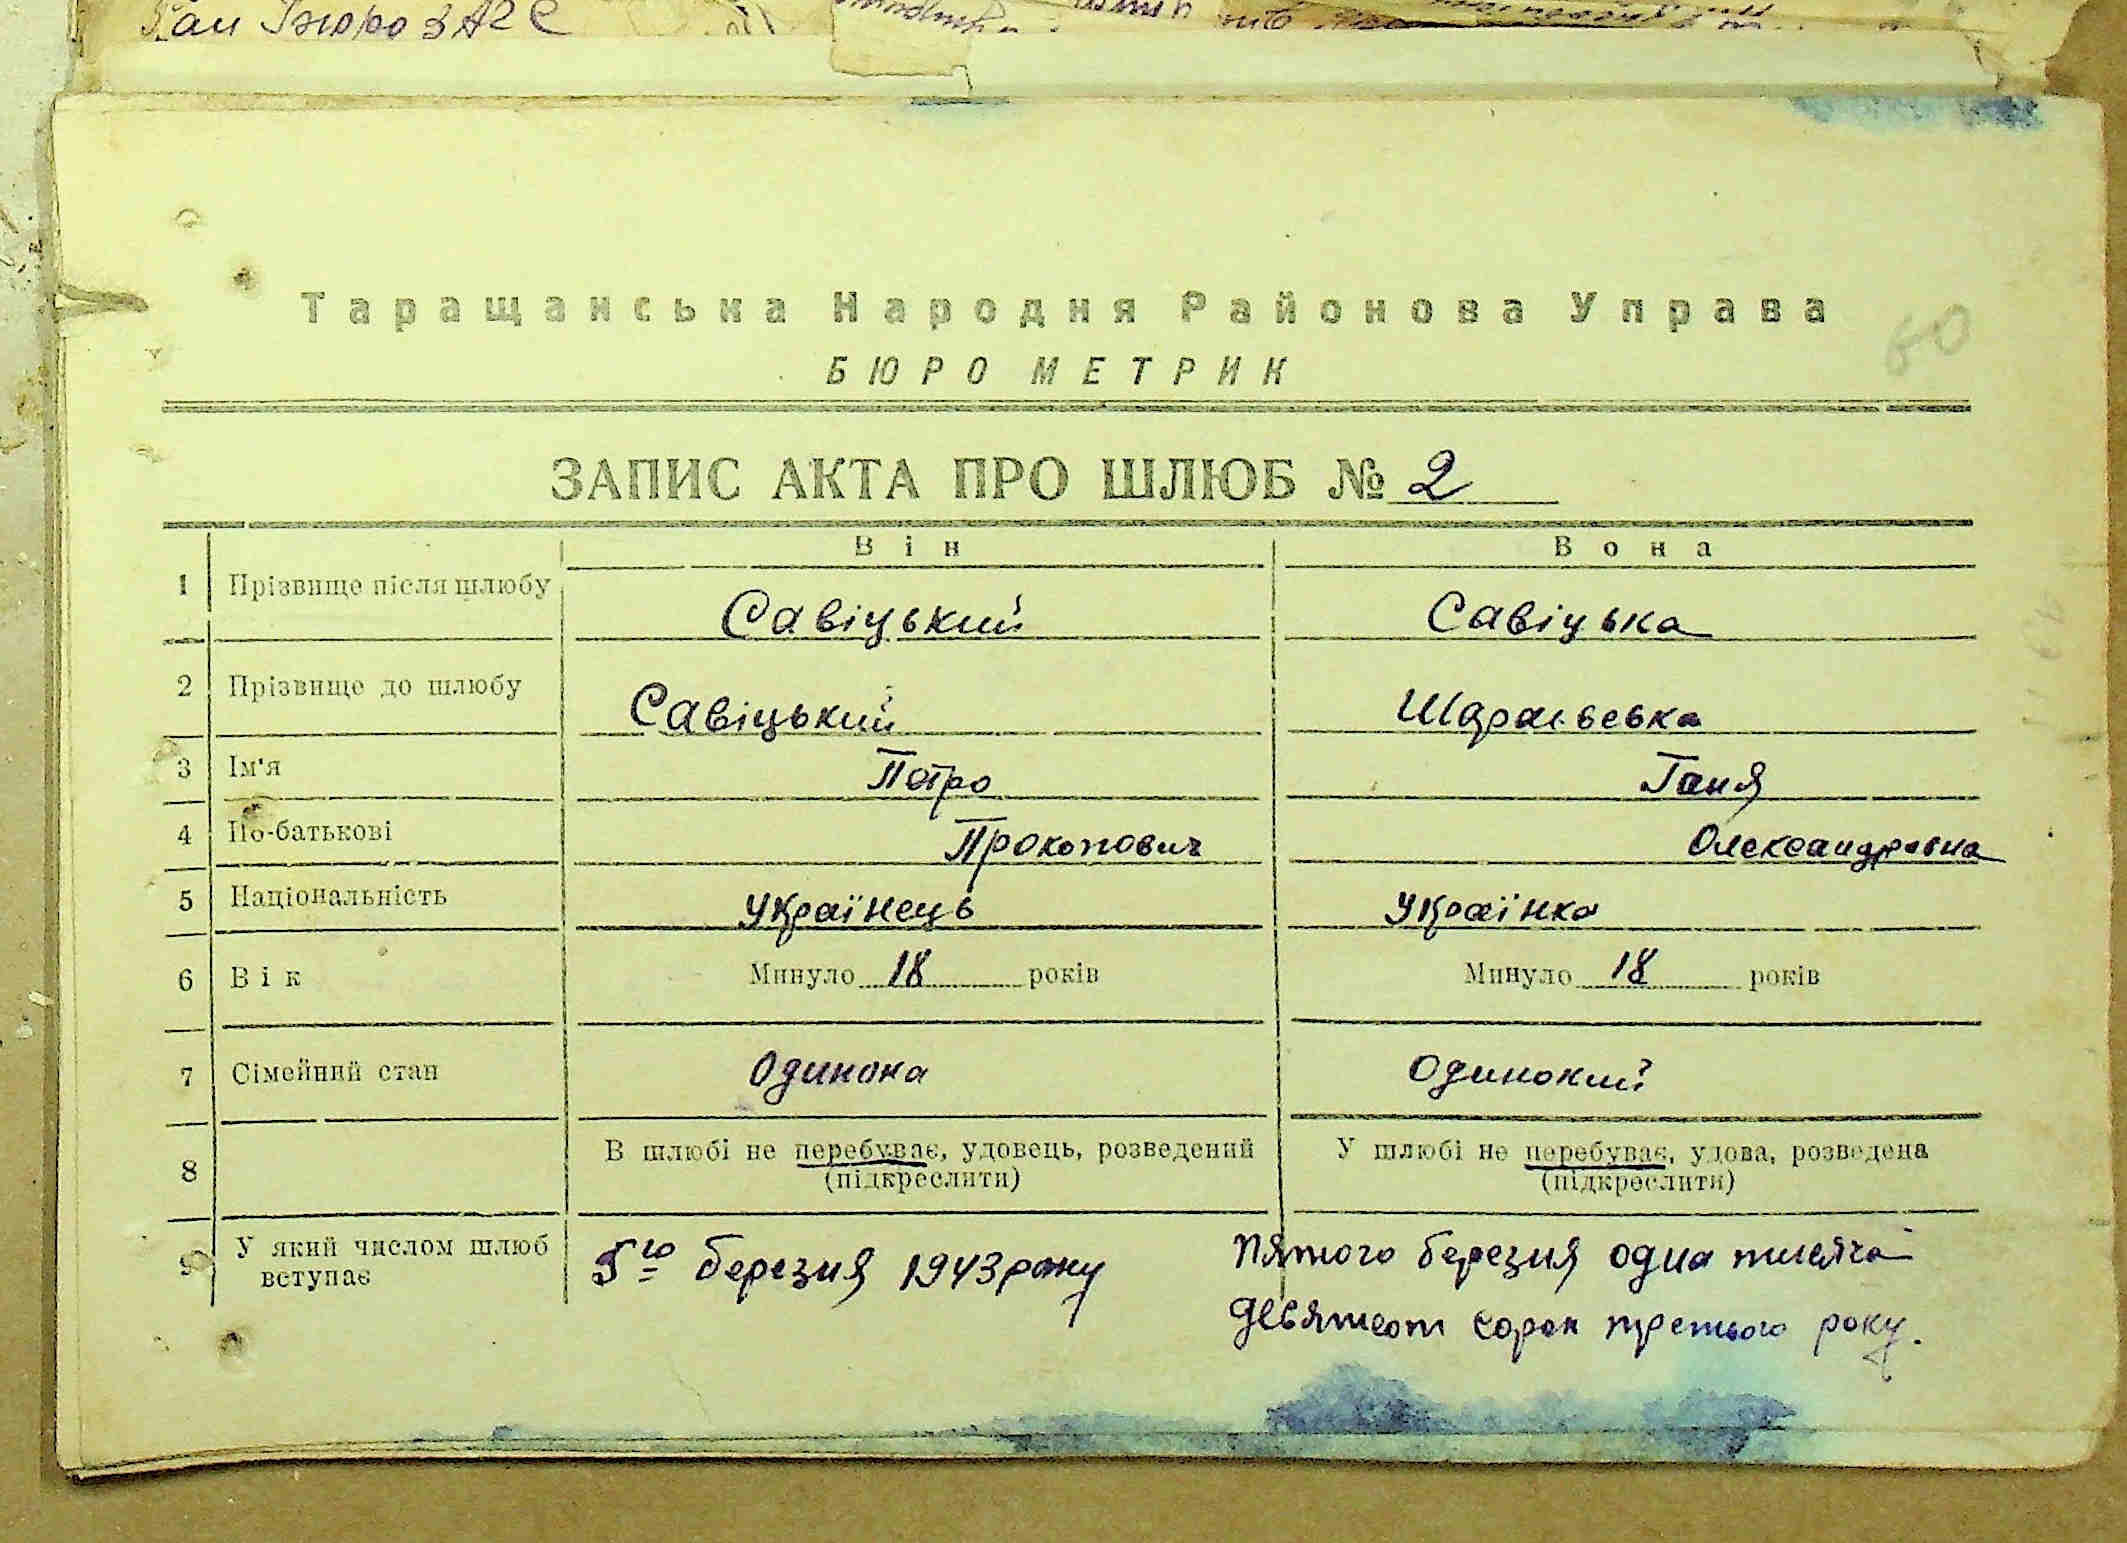 Таращанська Народня Районова Управа
БЮРО МЕТРИК
60
ЗАПИС АКТА ПРО ШЛЮБ № 2
Він Вона
1 Прізвище після шлюбу Савіцький Савіцька
2 Прізвище до шлюбу Савіцький
3 Ім'я Петро Ганя
4 По-батькові Прокопович Олександровна
5 Національність Українець Українка
6 Вік Минуло 18 років Минуло 18 років
7 Сімейний стан Одинока Одинокий
8 В шлюбі не перебуває, удовець, розведений У шлюбі не перебуває, удова, розведена
(підкреслити) (підкреслити)
9 У який числом шлюб вступає 5го березня 1943 року Пятого березня одна тисяча
девятсот сорок третього року.